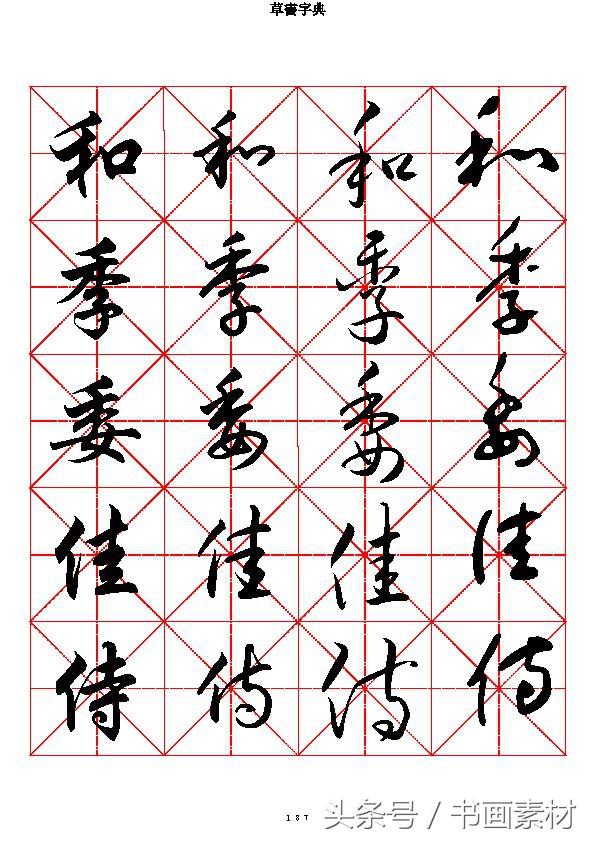 草書字典
和 和 和 和
季 季 季 季
委 委 委 委
佳 佳 佳 佳
侍 侍 侍 侍
187
头条号 / 书画素材